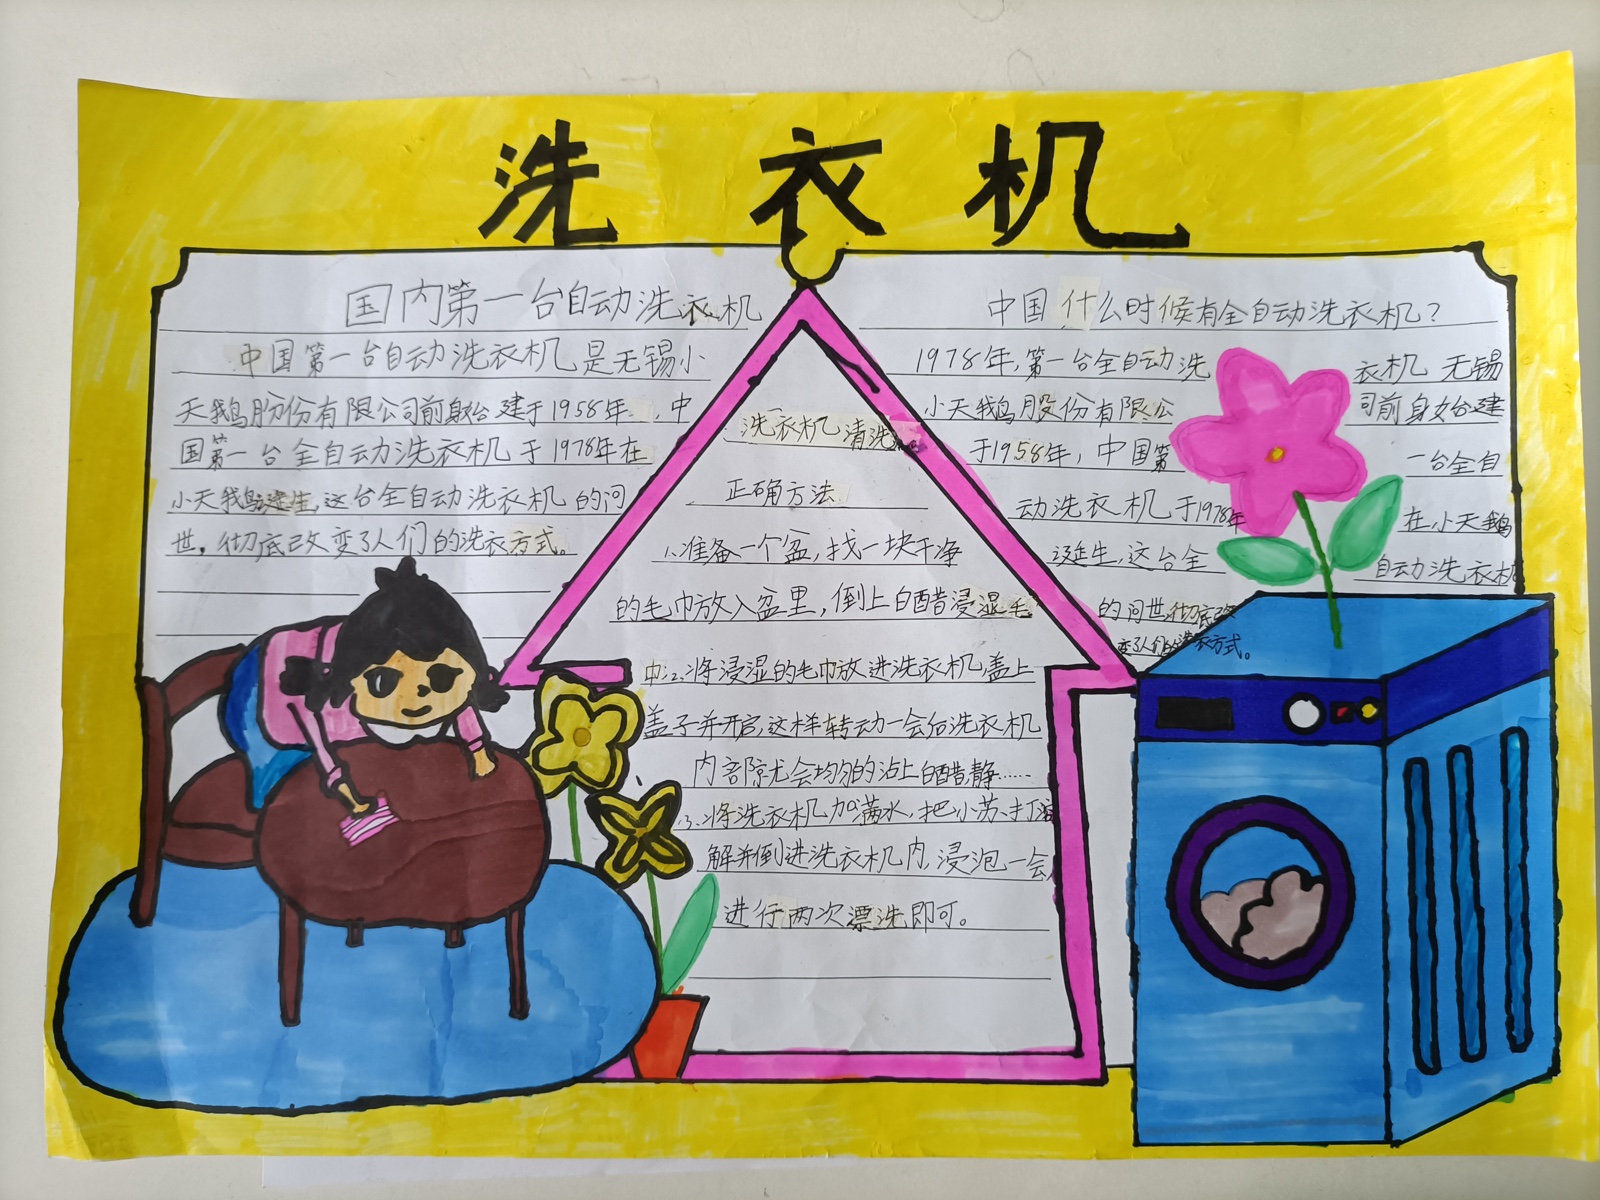 洗衣机
国内第一台自动洗衣机
中国第一台自动洗衣机是无锡小
天鹅股份有限公司前身始建于1958年，中
国第一台全自动洗衣机于1978年在
小天鹅诞生，这台全自动洗衣机的问
世，彻底改变了人们的洗衣方式。
洗衣机清洗
正确方法
1.准备一个盆，找一块干净
的毛巾放入盆里，倒上白醋浸湿毛
巾；2.将浸湿的毛巾放进洗衣机盖上
盖子并开启，这样转动一会后洗衣机
内部就会均匀的沾上白醋静……
3.将洗衣机加满水，把小苏打溶
解并倒进洗衣机内，浸泡一会
进行两次漂洗即可。
中国什么时候有全自动洗衣机？
1978年，第一台全自动洗衣机 无锡
小天鹅股份有限公司前身始建
于1958年，中国第一台全自
动洗衣机于1978年在小天鹅
诞生，这台全自动洗衣机
的问世，彻底改
变了人们的洗衣方式。